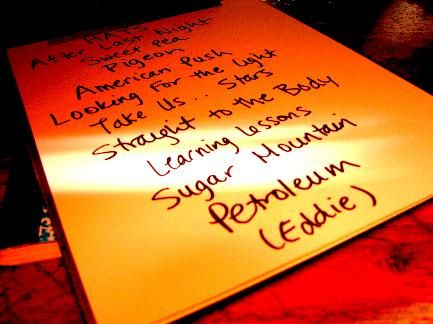 After Last Night
Sweet Pea
Pigeon
American Push
Looking For the Light
Take Us .. Stars
Straight to the Body
Learning Lessons
Sugar Mountain
Petroleum
(Eddie)